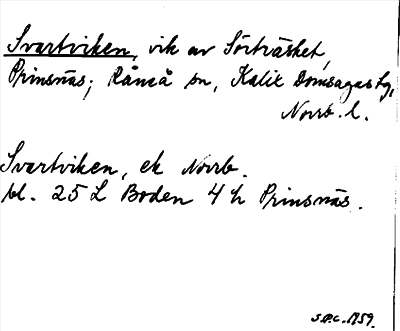 Svartviken, vik av Sörträsket,
Prinsnäs; Råneå sn, Kalix Domsagas tg,
Norrb. l.
Svartviken, ek Norrb.
bl. 25 L Boden 4 h Prinsnäs.
S.P.C. 1959.